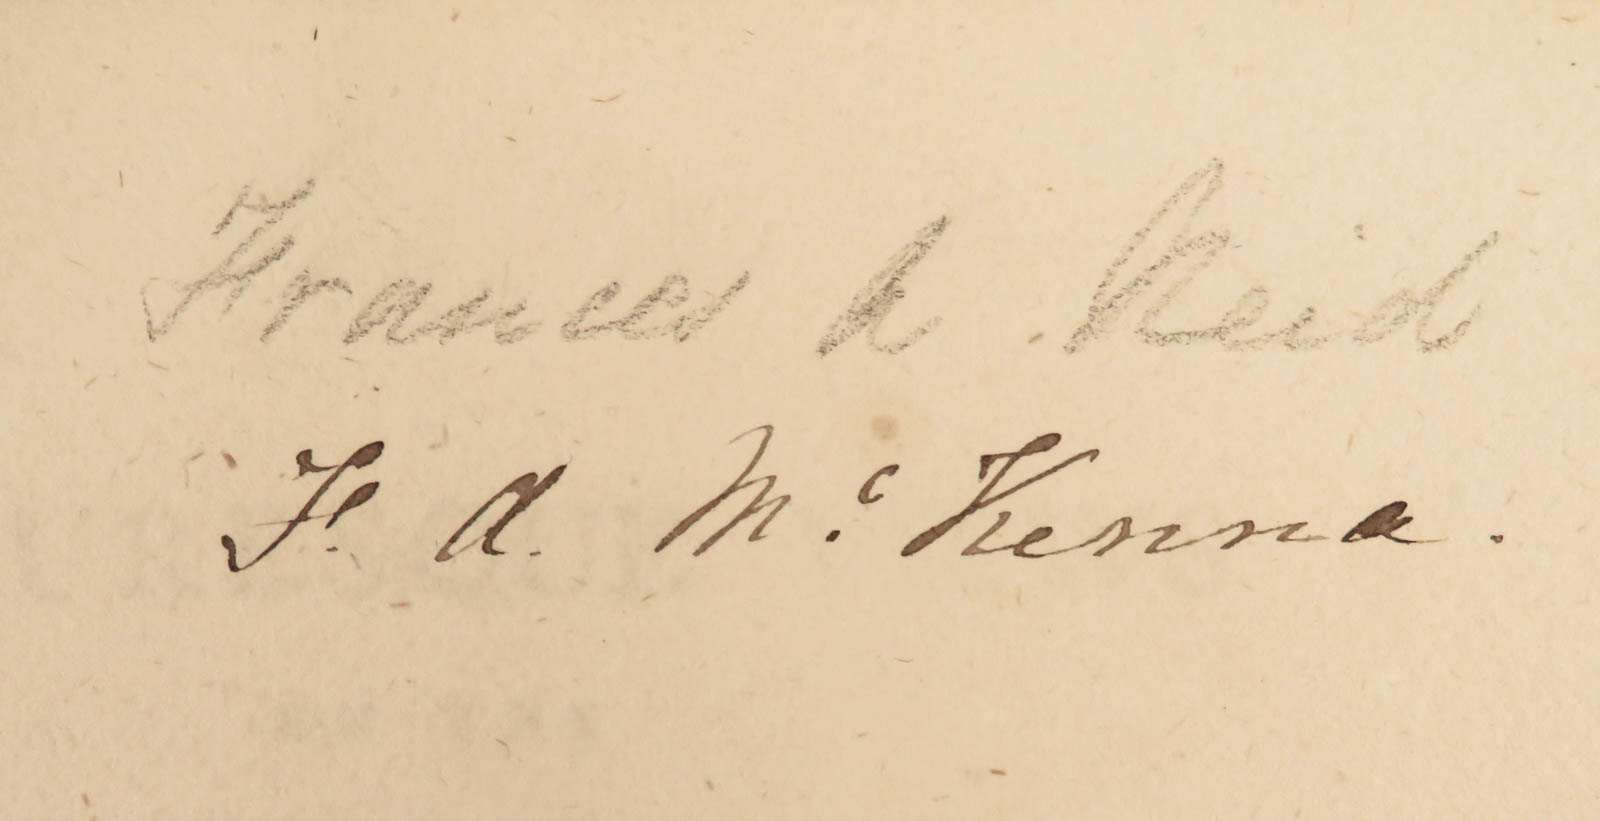 Frances A Reid
F. A. Mc. Kenna.